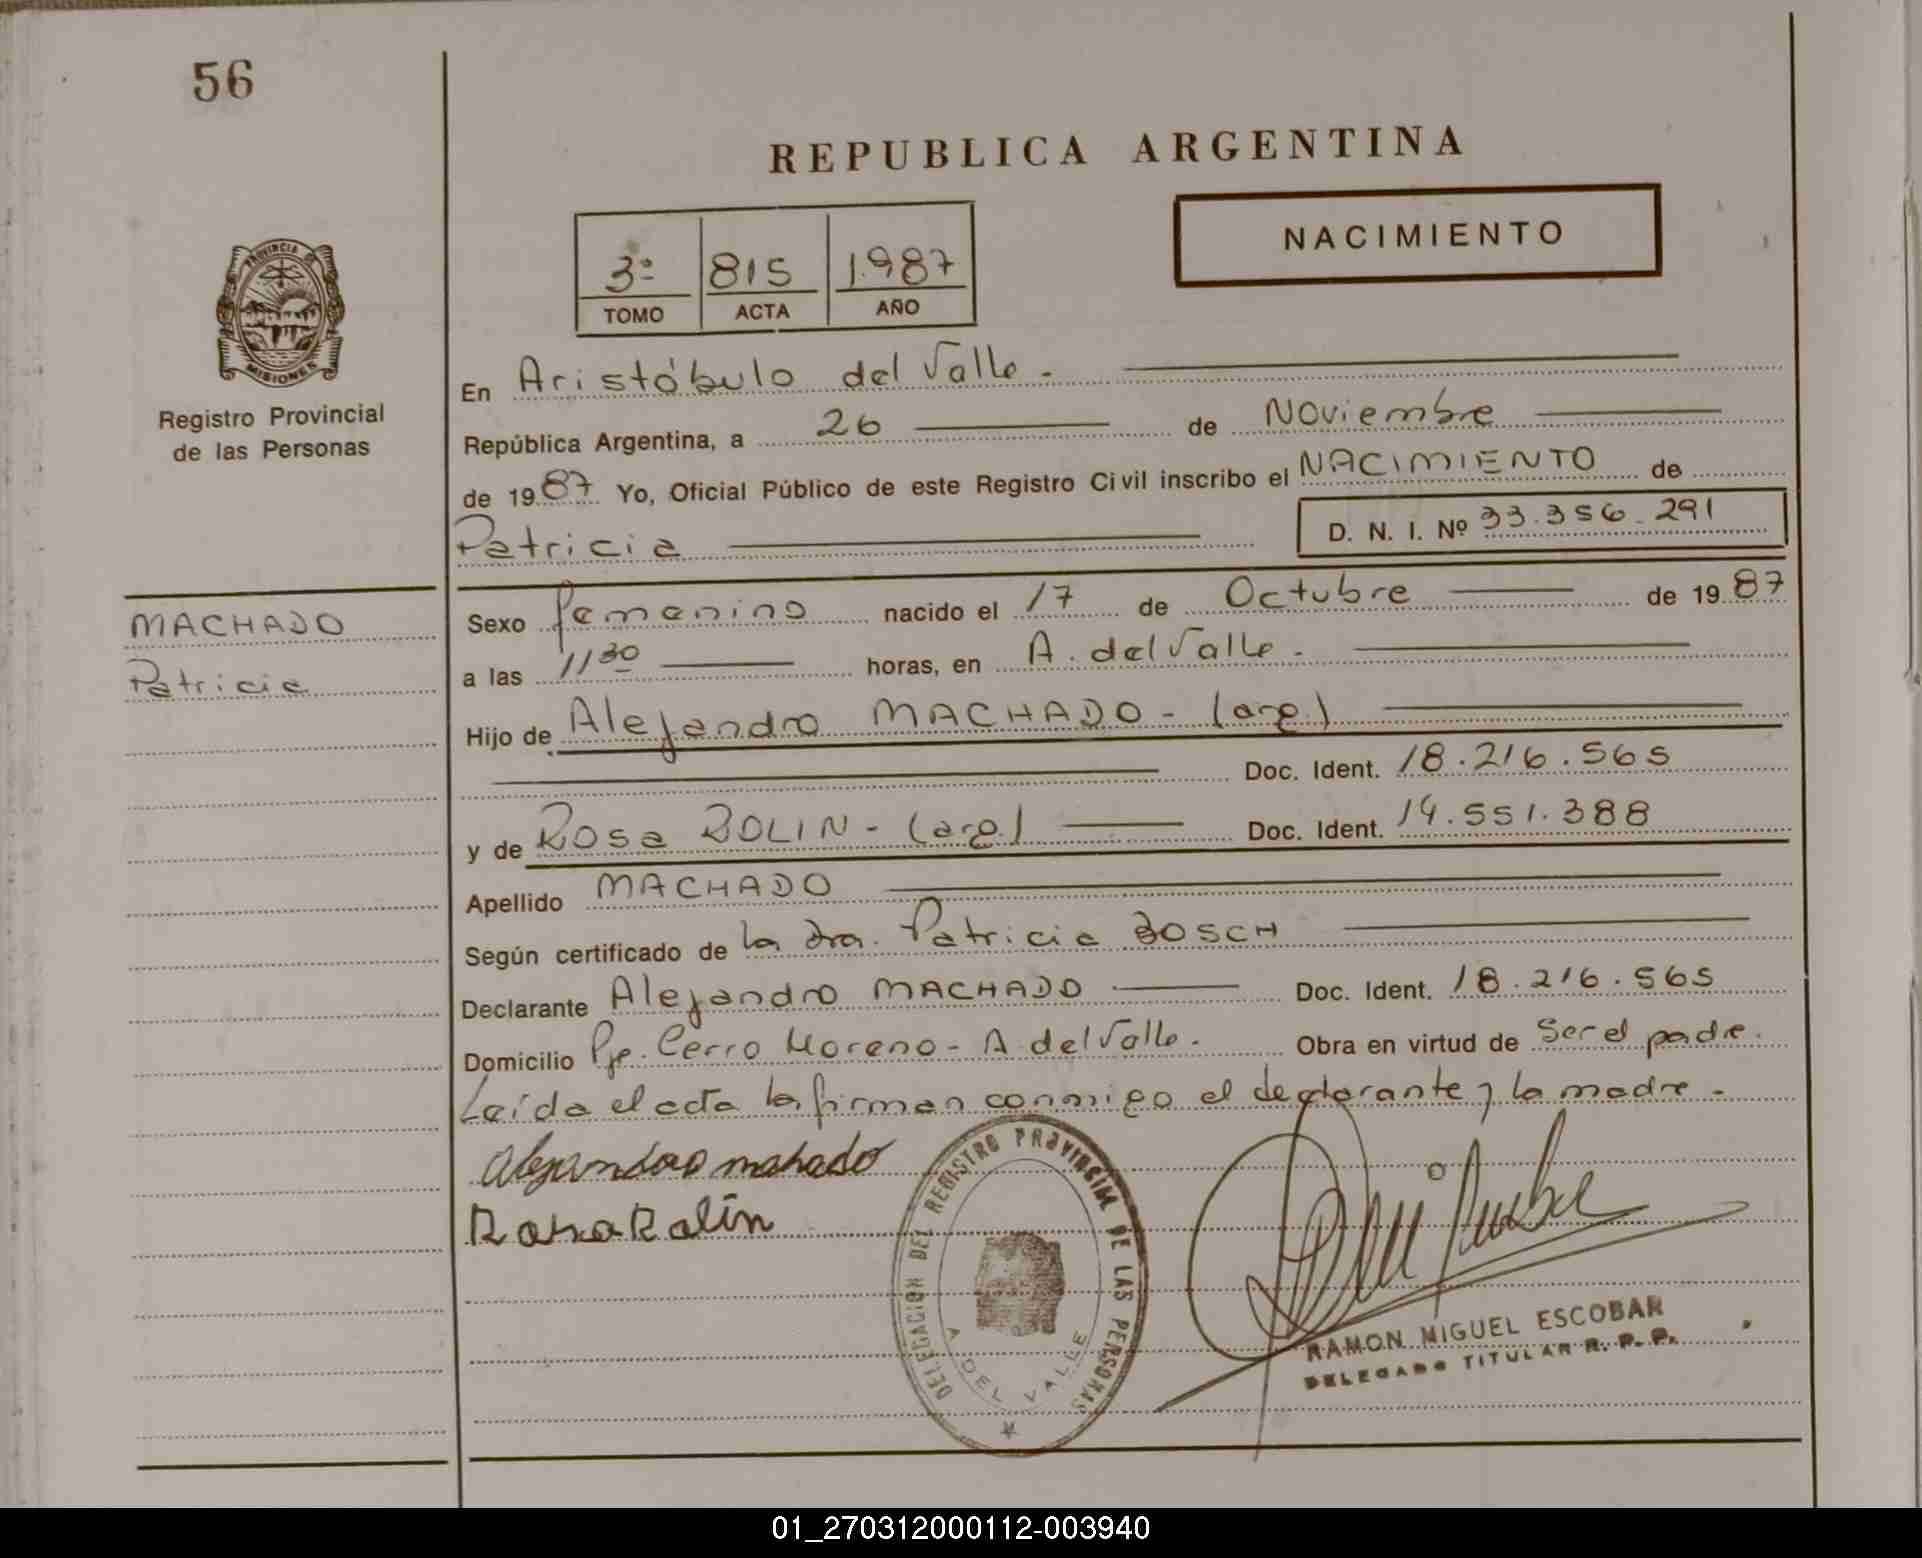 56
REPUBLICA ARGENTINA
NACIMIENTO
3º 815 1.987
TOMO ACTA AÑO
PROVINCIA DE
MISIONES
Registro Provincial
de las Personas
MACHADO
Patricia
En Aristóbulo del Valle.
República Argentina, a 26 de Noviembre
de 1987 Yo, Oficial Público de este Registro Civil inscribo el NACIMIENTO de
Patricia D. N. I. Nº 33.356.291
Sexo femenino nacido el 17 de Octubre de 1987
a las 11 30 horas, en A. del Valle.
Hijo de Alejandro MACHADO - (arg.)
Doc. Ident. 18.216.565
y de Rosa ROLIN - (arg.) Doc. Ident. 14.551.388
Apellido MACHADO
Según certificado de la Dra. Patricia BOSCH
Declarante Alejandro MACHADO Doc. Ident. 18.216.565
Domicilio Pje. Cerro Moreno - A del Valle. Obra en virtud de Ser el padre.
Leída el acta la firman conmigo el declarante y la madre.
Alejandro machado
Rosa Rolin
DELEGACION DEL REGISTRO PROVINCIAL DE LAS PERSONAS
A DEL VALLE
RAMON MIGUEL ESCOBAR
DELEGADO TITULAR R. P. P.
01_270312000112-003940